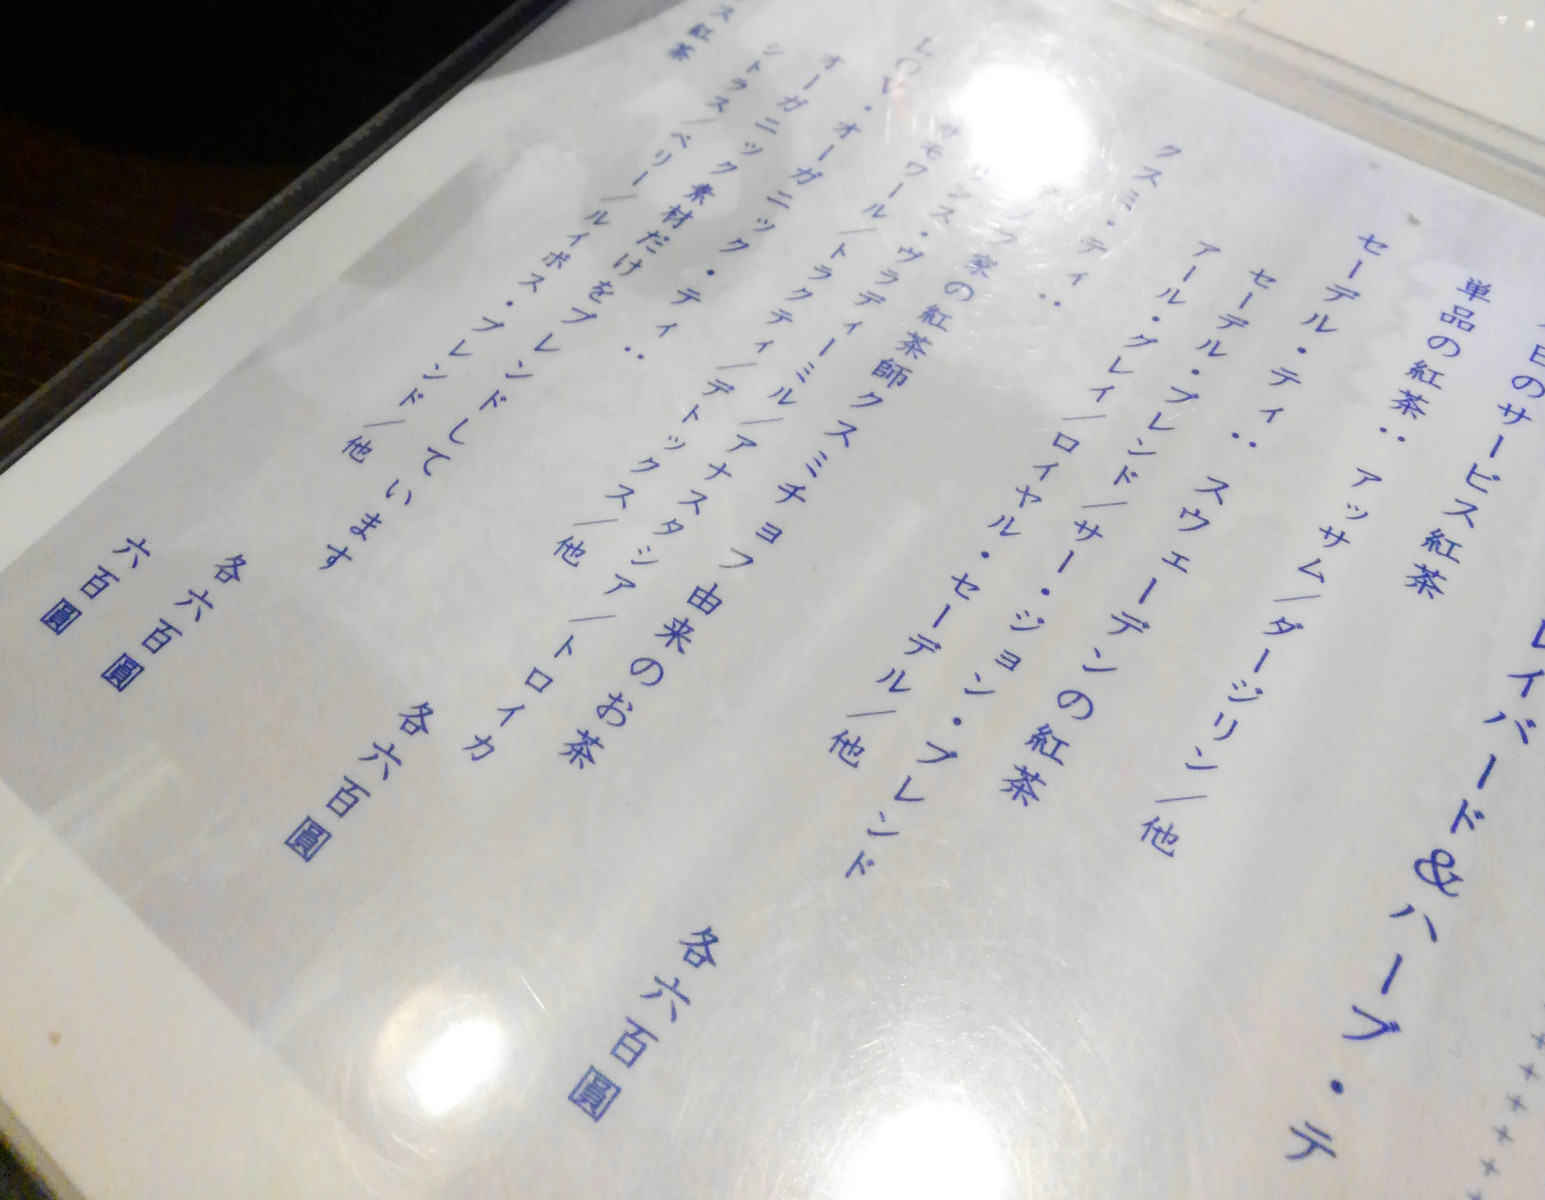 レイバード&ハーブ・テ
日のサービス紅茶
単品の紅茶： アッサム/ダージリン/他
セーデル・ティ： スウェーデンの紅茶
セーデル・ブレンド/サー・ジョン・ブレンド
アール・グレイ/ロイヤル・セーデル/他
各六百圓
クスミ・ティ：
家の紅茶師クスミチョフ由来のお茶
プリンス・ウラディーミル/アナスタシア/トロイカ
サモワール/トラクティ/デトックス/他
各六百圓
LOV・オーガニック・ティ：
オーガニック素材だけをブレンドしています
シトラス/ベリー/ルイボス・ブレンド/他
各六百圓
ス紅茶
六百圓